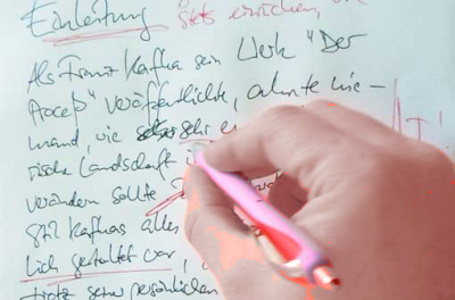 Einleitung stets
Als Franz Kafka sein Werk "Der
Proceß" veröffentlichte, ahnte nie-
mand, wie sehr e
rische Landschaft
verändern sollte
Stil Kafkas alles
lich gestaltet war,
trotz seiner persönlichen